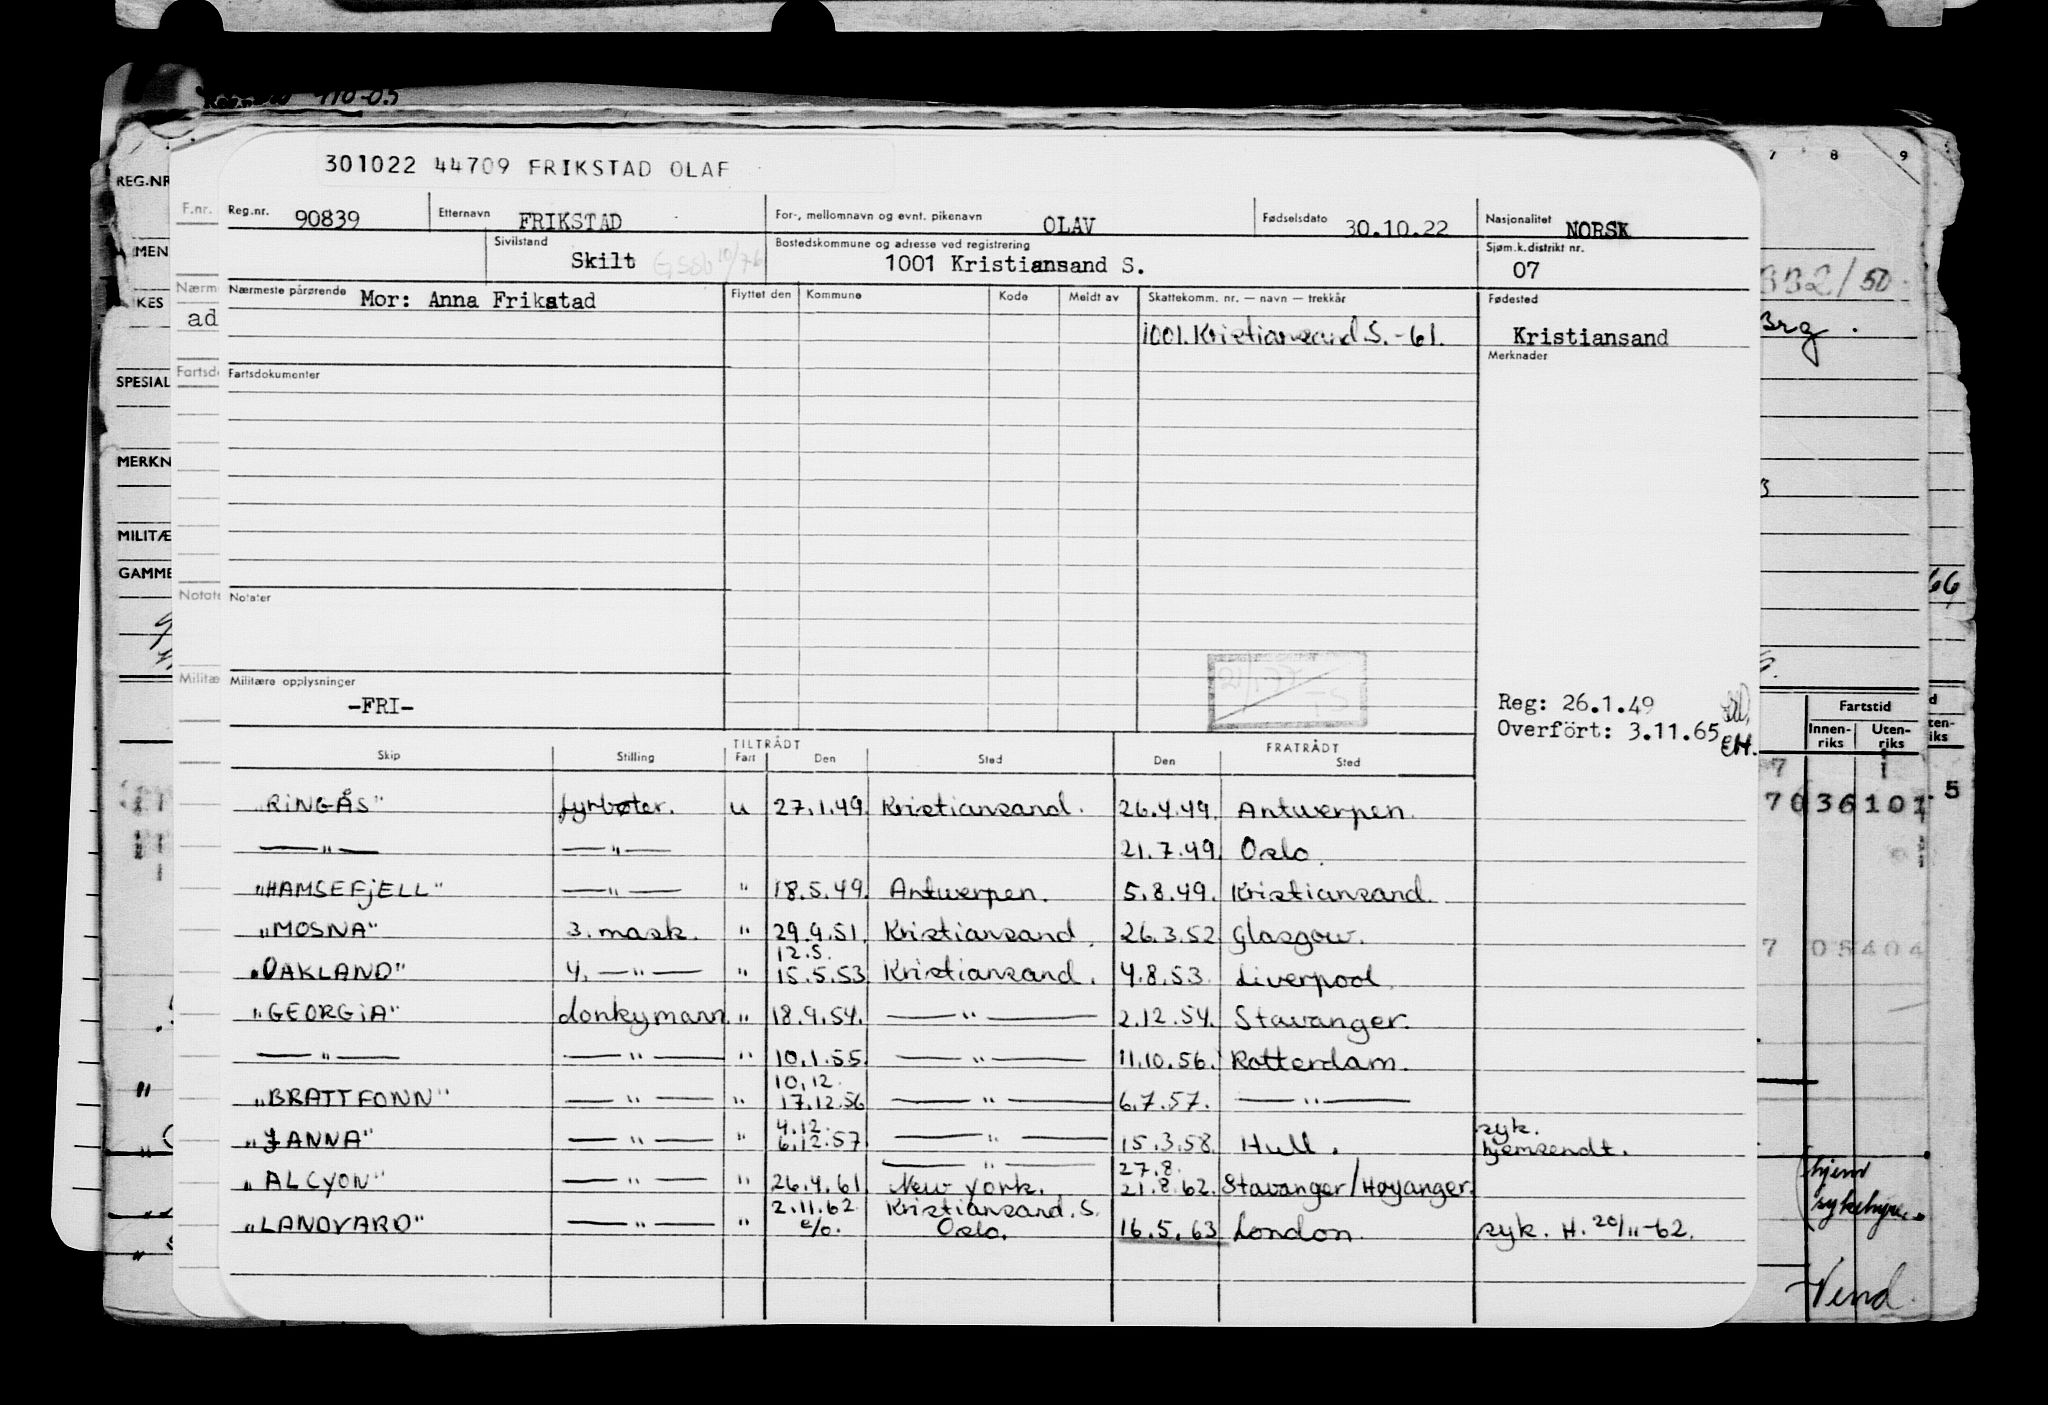 410-05
301022 44709 FRIKSTAD OLAF
REG.NR
F.nr. Reg.nr. 90839 Etternavn FRIKSTAD For-, mellomnavn og evnt. pikenavn OLAV Fødselsdato 30.10.22 Nasjonalitet NORSK
Sivilstand Skilt Bostedskommune og adresse ved registrering 1001 Kristiansand S. Sjøm.k.distrikt nr. 07
Nærmeste pårørende Mor: Anna Frikstad Flyttet den Kommune Kode Meldt av Skattekomm. nr. — navn — trekkår Fødested
ad 1001. Kristiansand S. - 61. Kristiansand
Merknader
Fartsdokumenter
SPESIAL
MERKN
MILITÆ
GAMME
Notater
Militære opplysninger
-FRI-
Reg: 26.1.49
Overfört: 3.11.65 EH.
TILTRÅDT FRATRÅDT
Skip Stilling Fart Den Sted Den Sted
"RINGÅS" fyrbøter. u 27.1.49. Kristiansand. 26.4.49. Antwerpen.
— " — — " — 21.7.49. Oslo.
"HAMSEFJELL" — " — " 18.5.49. Antwerpen. 5.8.49. Kristiansand.
"MOSNA" 3. mask. " 29.9.51. Kristiansand. 26.3.52 Glasgow.
12.5.
"OAKLAND" 4. — " — " 15.5.53 Kristiansand. 4.8.53. Liverpool.
"GEORGIA" donkymann. " 18.9.54. — " — 2.12.54. Stavanger.
— " — — " — " 10.1.55. — " — 11.10.56. Rotterdam.
10.12.
"BRATTFONN" — " — " 17.12.56 — " — 6.7.57. — " —
4.12. syk.
"JANNA" — " — " 6.12.57. — " — 15.3.58. Hull. hjemsendt.
— " — 27.8.
"ALCYON" — " — " 26.4.61. New York. 21.8.62. Stavanger/Høyanger.
2.11.62 Kristiansand. S.
"LANDVARD" — " — " e/o. Oslo. 16.5.63 London. syk. H. 20/11-62.
7 8 9
332/50
Brg.
Fartstid
Innen-riks Uten-riks
hjem
Vend